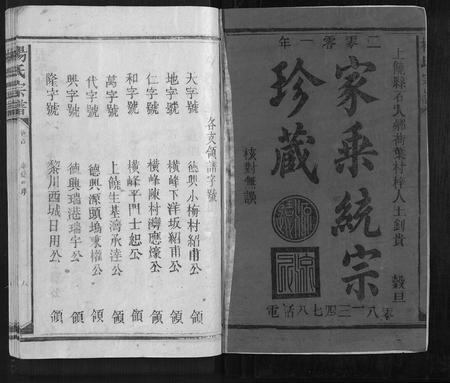 二零零一年
上饒縣石人鄉荷葉村梓人王釗貴
穀旦
家乘統宗
珍藏
核對無誤
電話八七四三一八
各支領譜字號
天字號 德興小梅村紹甫公 領
地字號 橫峰下洋坂紹甫公 領
仁字號 橫峰陳村灣應憲公 領
和字號 橫峰平門士起公 領
萬字號 上饒生基灣承達公 領
代字號 德興源頭塢秉權公 領
興字號 德興瑞港瑞宇公 領
隆字號 黎川西城日用公 領
楊氏宗譜